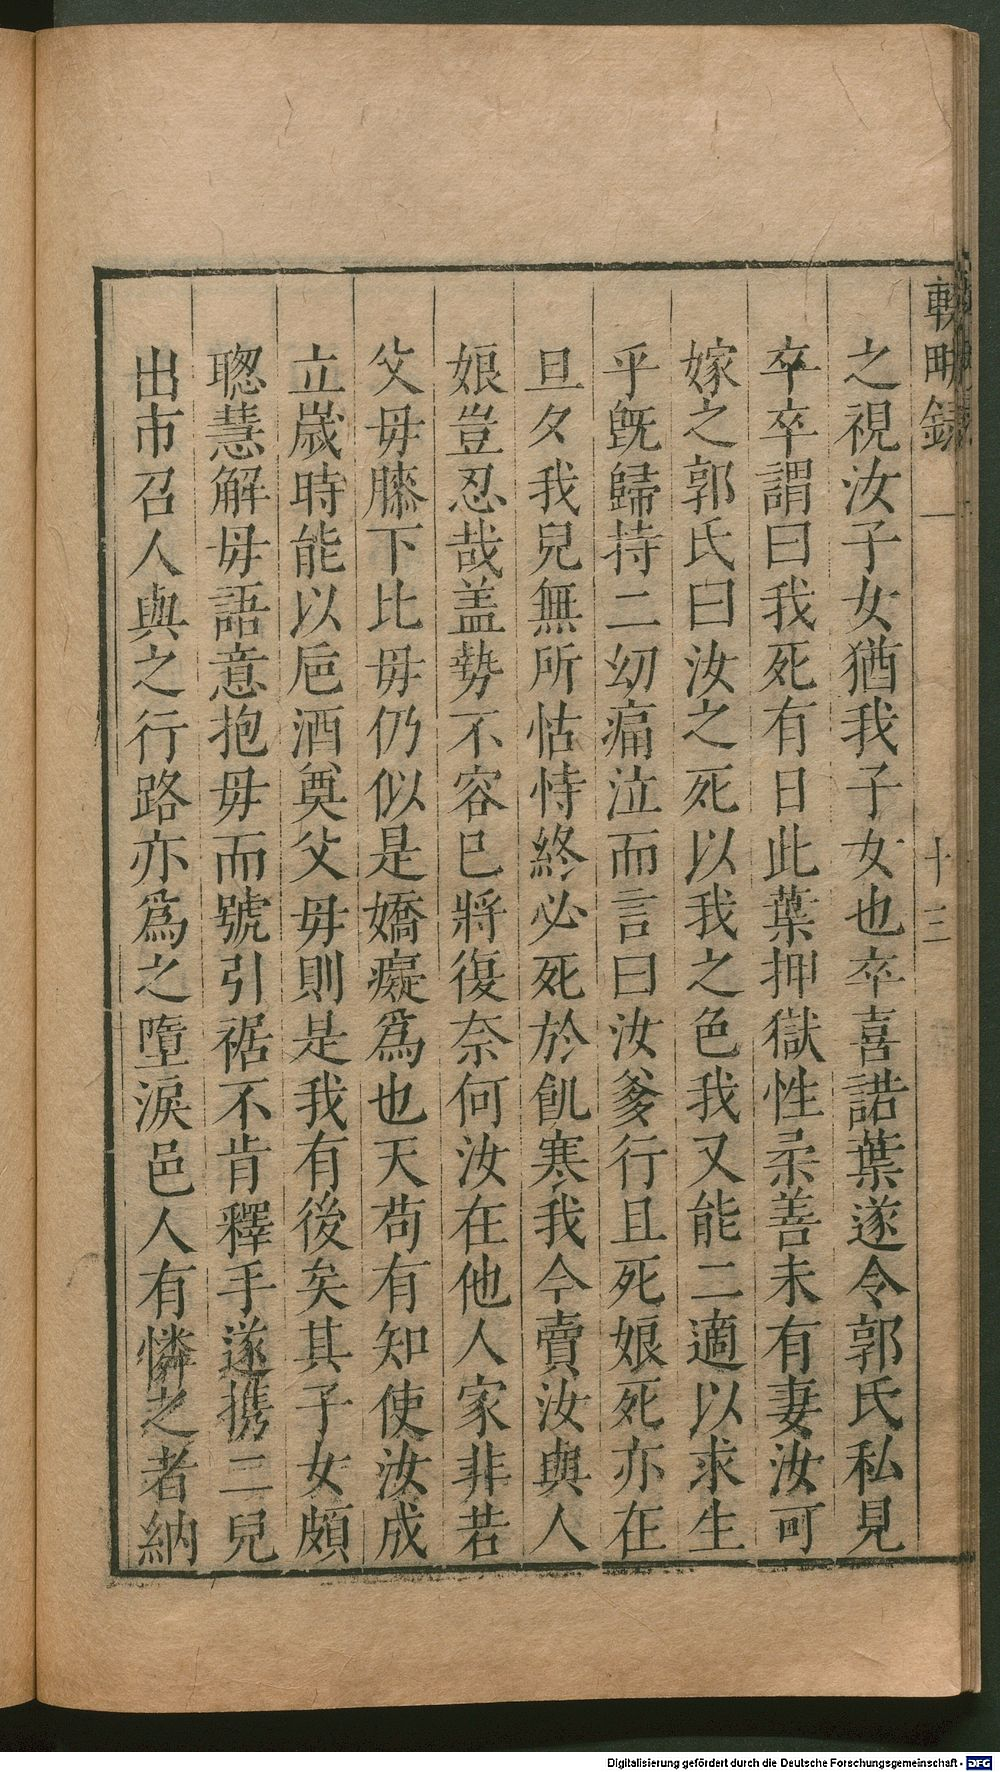 輟畊録 一 十三
之視汝子女猶我子女也卒喜諾葉遂令郭氏私見
卒卒謂曰我死有日此葉押獄性柔善未有妻汝可
嫁之郭氏曰汝之死以我之色我又能二適以求生
乎旣歸持二幼痛泣而言曰汝爹行且死娘死亦在
旦夕我兒無所怙恃終必死於飢寒我今賣汝與人
娘豈忍哉盖勢不容已將復奈何汝在他人家非若
父母膝下比毋仍似是嬌癡爲也天苟有知使汝成
立歲時能以巵酒奠父母則是我有後矣其子女頗
聰慧解母語意抱母而號引裾不肯釋手遂携二兒
出市召人與之行路亦爲之墮淚邑人有憐之者納
Digitalisierung gefördert durch die Deutsche Forschungsgemeinschaft - DFG